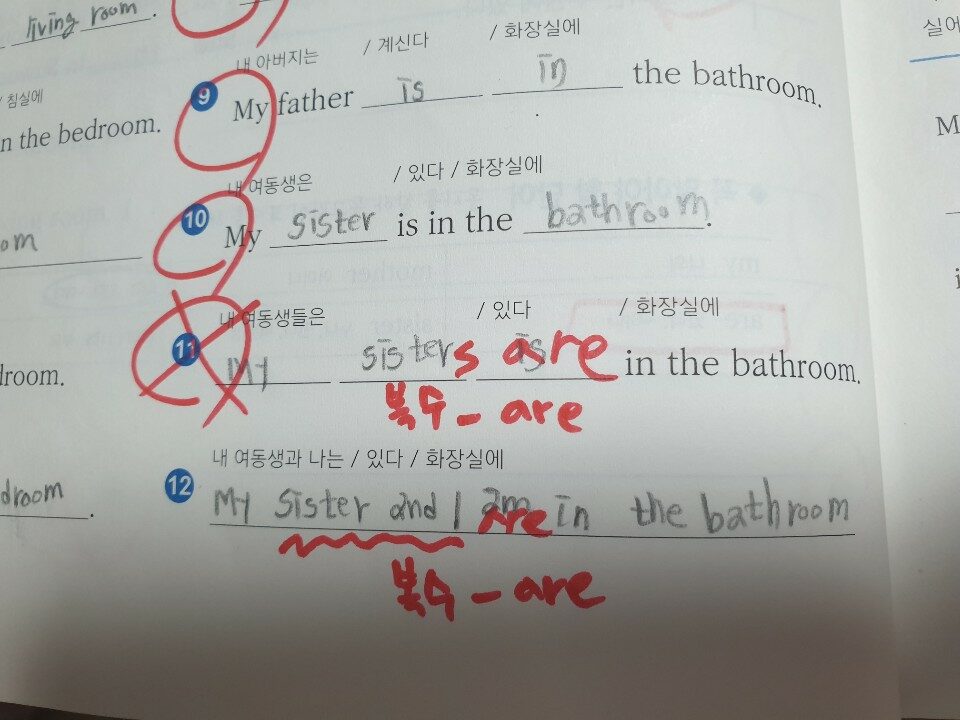 living room.
내 아버지는 / 계신다 / 화장실에
9 My father is in the bathroom.
/ 침실에
n the bedroom.
내 여동생은 / 있다 / 화장실에
10 My sister is in the bathroom.
om
내 여동생들은 / 있다 / 화장실에
11 My sisters is are in the bathroom.
복수 - are
droom.
내 여동생과 나는 / 있다 / 화장실에
12 My sister and I am are in the bathroom
droom.
복수 - are
실에
M